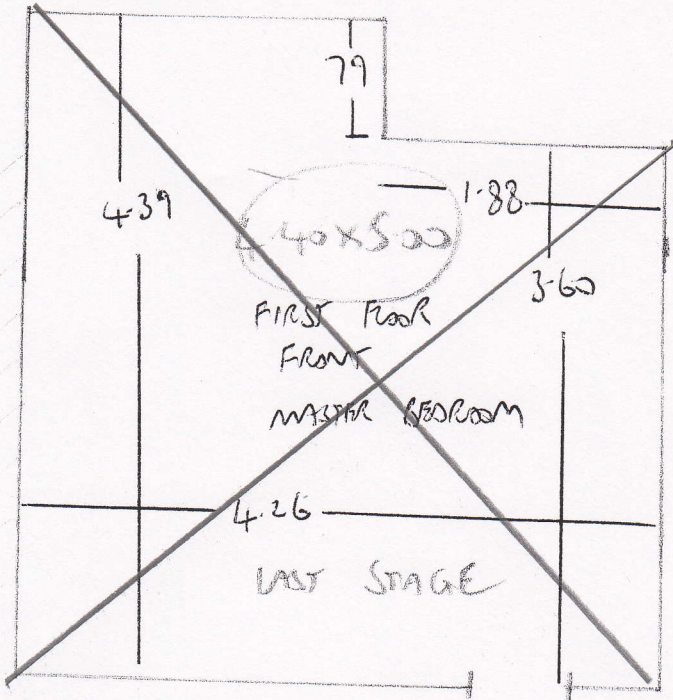 79
4.39
1.88
4.40 x 5.00
3.60
FIRST FLOOR
FRONT
MASTER BEDROOM
4.26
LAST STAGE